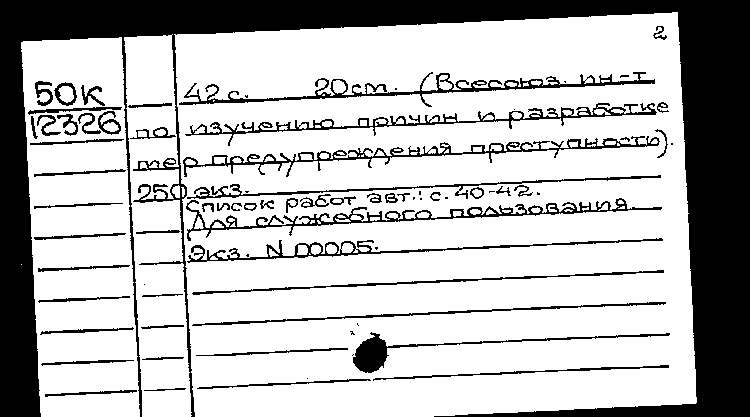 2
50к
12326
42 с. 20 см. (Всесоюз. ин-т
по изучению причин и разработке
мер предупреждения преступности).
250 экз.
Список работ авт.: с. 40-42.
Для служебного пользования.
Экз. N 00005.